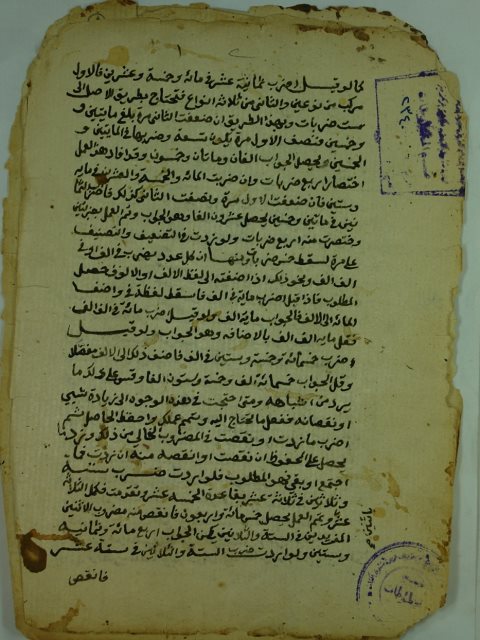 كما لو قيل اضرب ثمانية عشر في مائة وخمسة وعشرين فالاول
مركب من نوعين والثاني من ثلاثة انواع فتحتاج بطريق الاصل الى
ست ضربات وبهذا الطريق ان ضعفت الثاني مرة بلغ مائتين و
وخمسين ونصف الاول مرة يكون تسعة وضربها في المائتين و
الخمسين يحصل الجواب الفان ومائتان وخمسون وقد افاد هذا العمل
اختصار اربع ضربات وان ضربت المائة والخمسة والعشرين في مائة
وستين فان ضعفت الاول مرة ونصفت الثاني كذلك فاضرب
في مائتين وخمسين يحصل عشرون الفا وهو الجواب وتم العمل بضربتين
واختصرت منه اربع ضربات ولو زدت في التضعيف والتنصيف
على مرة لسقط خمس ضربات ومنها ان كل عدد يضرب في الف او في
الف الف ونحو ذلك اذا اضفته الى لفظ الالف او الالوف حصل
المطلوب فاذا قيل اضرب مائة في الف فاسقط لفظة في واضف
المائة الى الالف فالجواب مائة الف ولو قيل اضرب مائة في الف الف
فقل مائة الف الف بالاضافة وهو الجواب ولو قيل
اضرب خمسمائة وخمسة وستين في الف فاضف ذلك الى الالف مفصلا
وقل الجواب خمسمائة الف وخمسة وستون الفا وقس على ذلك ما
يرد من اشباهه ومتى احتجت في هذه الوجوه الى زيادة شيء
او نقصانه فافعل ما تحتاج اليه وتمم عملك واحفظ الحاصل ثم
اضرب ما زدت او نقصت في المضروب الخالي من ذلك وزد ما
يحصل على المحفوظ ان نقصت او انقصه منه ان زدت فما
اجتمع او بقي فهو المطلوب فلو اردت ضرب ستة
وثلاثين في ثلاثة عشر
عشر وتمم العمل يحصل خمسمائة واربعون فانقص منه مضروب الاثنين
المزيدين في الستة والثلاثين يكن الجواب اربع مائة وثمانية
وستين ولو اردت ضرب الستة والثلاثين في ستة عشر
فانقص